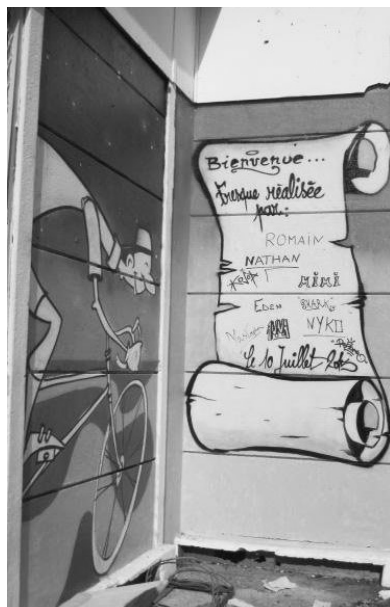 Bienvenue...
Fresque réalisée
par:
ROMAIN
NATHAN
MIMI
EDEN
NYKO
Le 10 Juillet